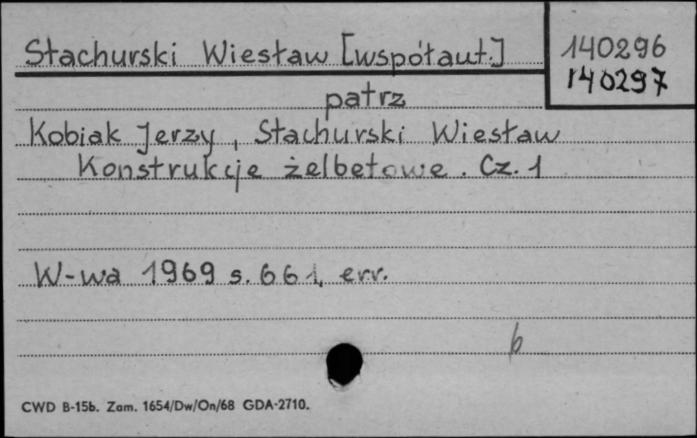 Stachurski Wiesław [współaut.]
140296
140297
patrz
Kobiak Jerzy, Stachurski Wiesław
Konstrukcje żelbetowe. Cz. 1
W-wa 1969 s. 661, err.
b
CWD B-15b. Zam. 1654/Dw/On/68 GDA-2710.